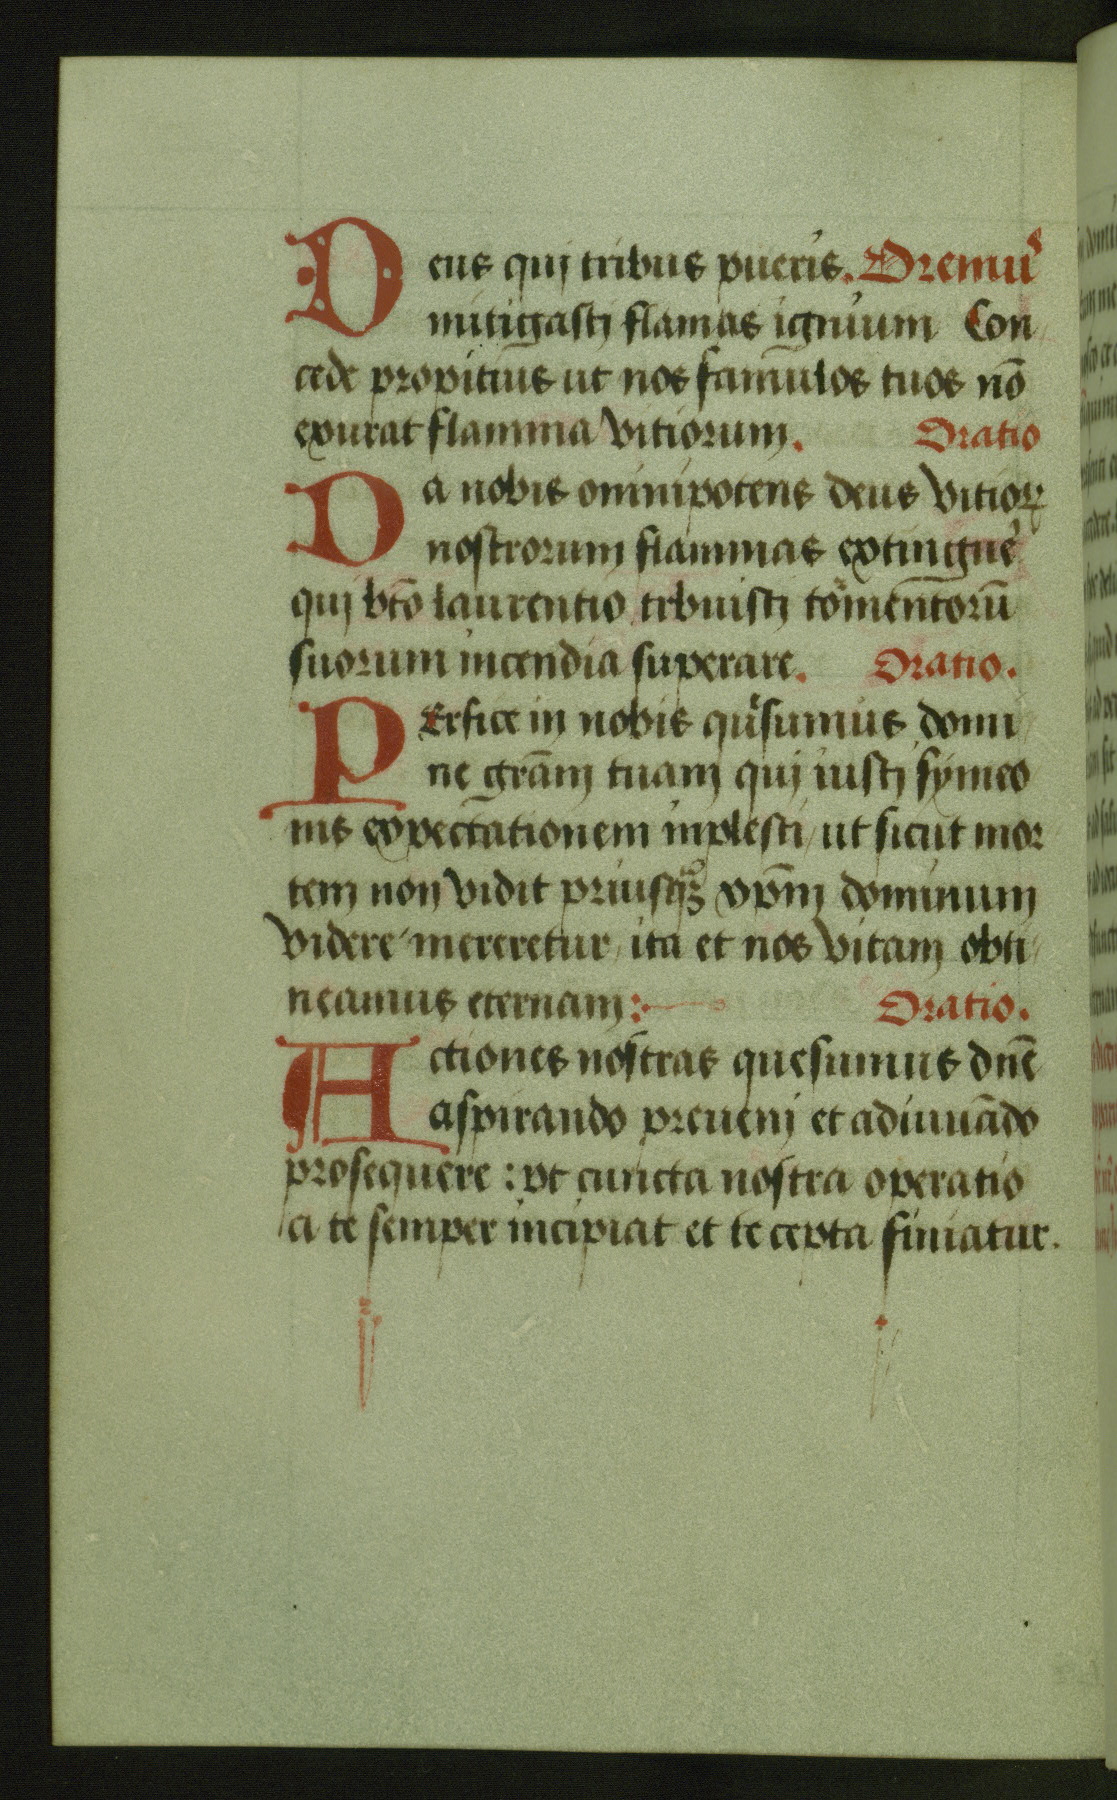 Deus quj tribus pueris. Oremus
mitigastj flamas ignium Con
cede propitius ut nos famulos tuos nō
exurat flamma vitiorum. Oratio
Da nobis omnipotens deus vitioꝝ
nostrorum flammas extingue
quj bt̄o laurentio tribuistj tormentorū
suorum incendia superare. Oratio.
Perfice in nobis quͣsumus domi
ne grām tuam quj iustj symeo
nis expectationem inplesti / ut sicut mor
tem non vidit priusqͣꝫ xp̄m dominum
videre mereretur / ita et nos vitam obti
neamus eternam: Oratio.
Actiones nostras quesumus dn̄e
aspirando preuenj et adiuuādo
prosequere : vt cuncta nostra operatio
a te semper incipiat et te cepta finiatur.